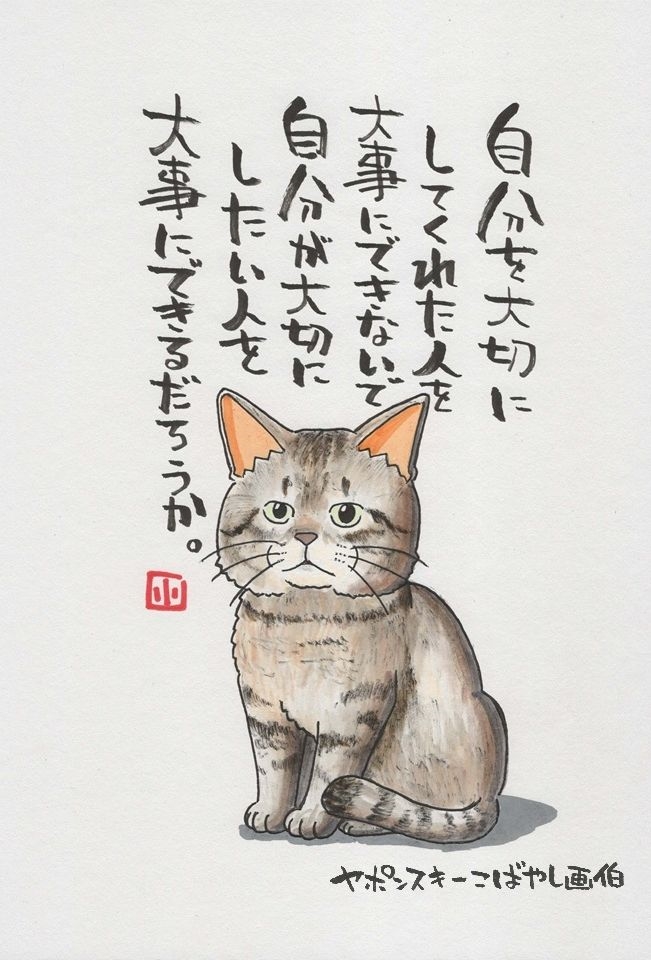 自分を大切に
してくれた人を
大事にできないで
自分が大切に
したい人を
大事にできるだろうか。
小
ヤポンスキーこばやし画伯